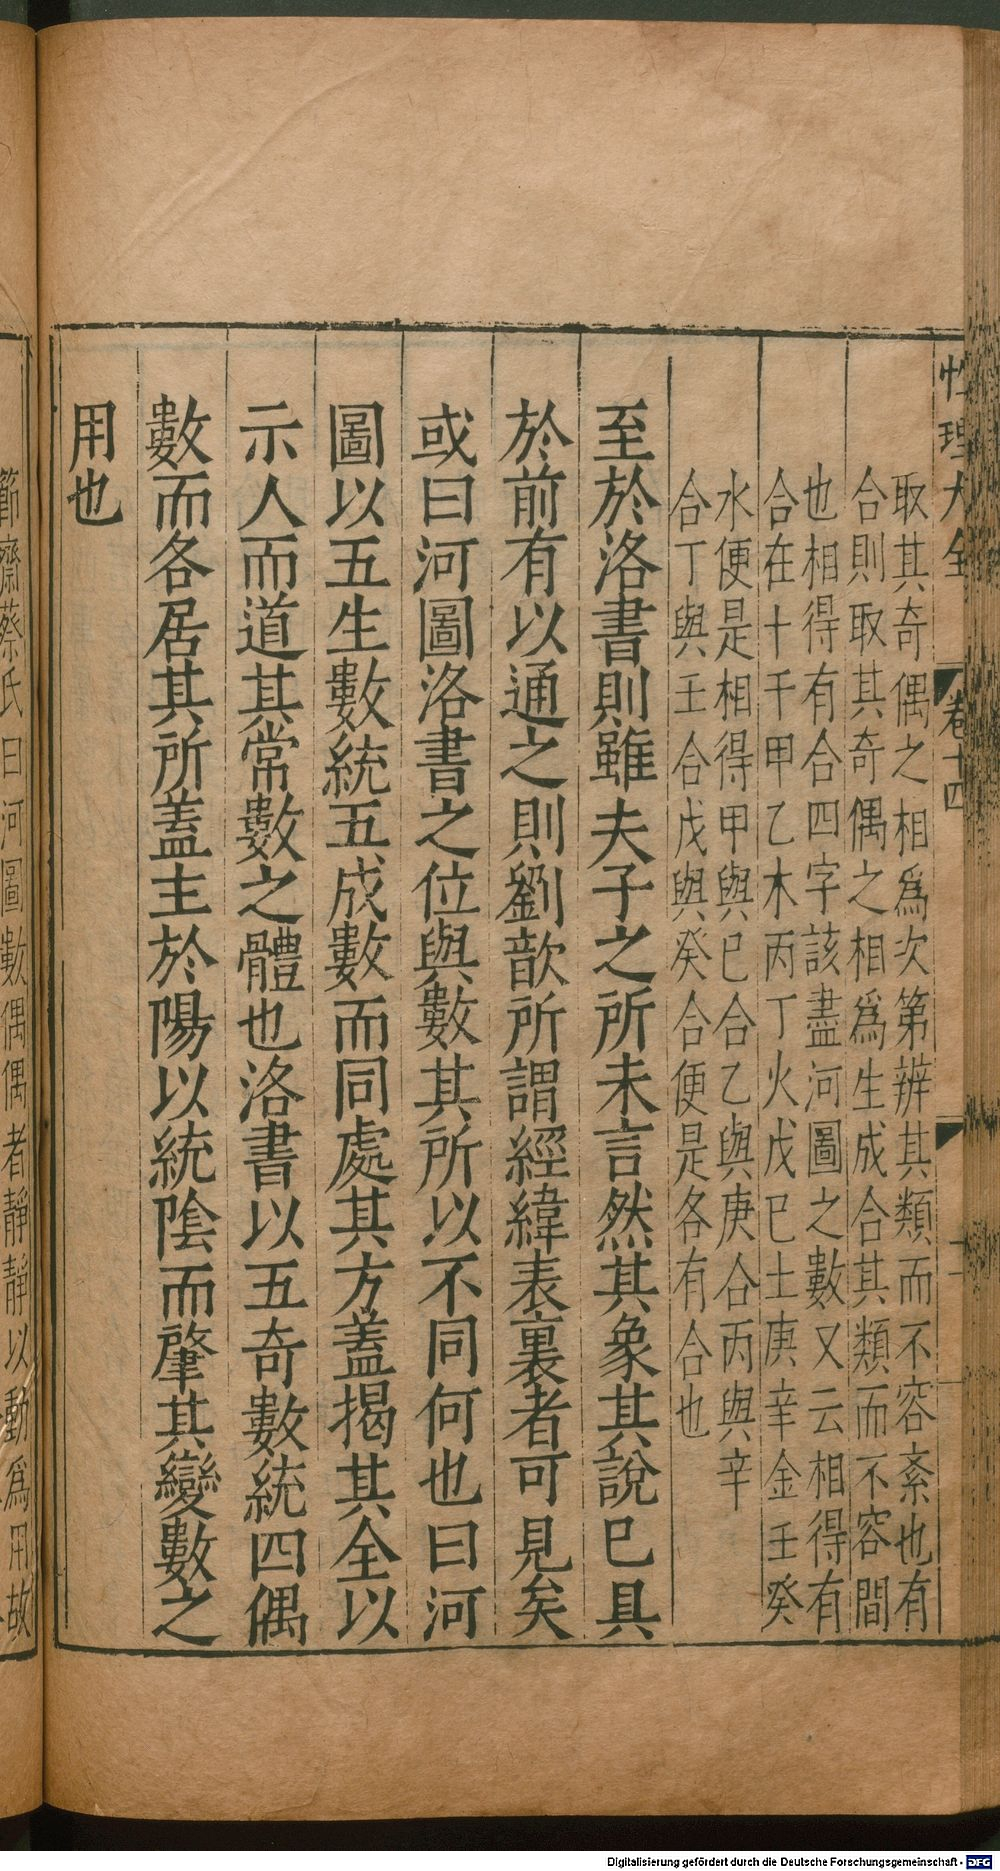 性理大全 卷十四
取其奇偶之相爲次第辨其類而不容紊也有
合則取其奇偶之相爲生成合其類而不容間
也相得有合四字該盡河圖之數又云相得有
合在十干甲乙木丙丁火戊巳土庚辛金壬癸
水便是相得甲與巳合乙與庚合丙與辛
合丁與壬合戊與癸合便是各有合也
至於洛書則雖夫子之所未言然其象其說巳具
於前有以通之則劉歆所謂經緯表裏者可見矣
或曰河圖洛書之位與數其所以不同何也曰河
圖以五生數統五成數而同處其方蓋揭其全以
示人而道其常數之體也洛書以五奇數統四偶
數而各居其所蓋主於陽以統陰而肇其變數之
用也
節齋蔡氏曰河圖數偶偶者靜靜以動爲用故
Digitalisierung gefördert durch die Deutsche Forschungsgemeinschaft - DFG